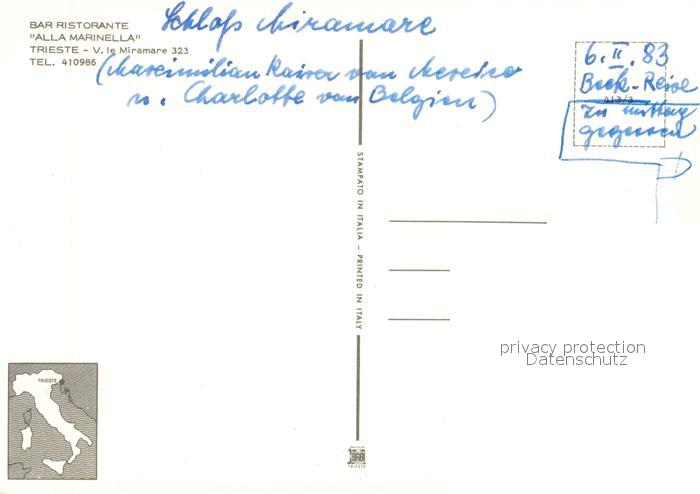 BAR RISTORANTE
"ALLA MARINELLA"
TRIESTE - V. le Miramare 323
TEL. 410986
Schloß Miramare
(Maximilian Kaiser von Mexico
u. Charlotte von Belgien)
6.II.83
Beck-Reise
zu mittag
gegessen
STAMPATO IN ITALIA – PRINTED IN ITALY
privacy protection
Datenschutz
TRIESTE
TRIESTE